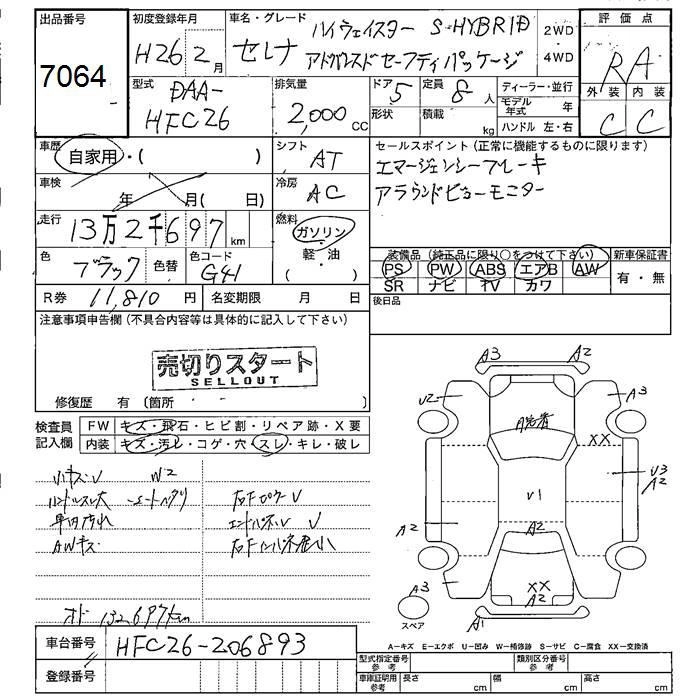 出品番号 初度登録年月 車名・グレード ハイウェイスター S-HYBRID 2WD 評価点
7064 H26 2月 セレナ アドバンスドセーフティパッケージ 4WD RA
型式 DAA-HFC26 排気量 2,000cc ドア 5 定員 8人 ディーラー・並行 外装 内装
形状 積載 kg モデル年式 年 ハンドル 左・右 C C
車歴 自家用・( ) シフト AT セールスポイント(正常に機能するものに限ります)
エマージェンシーブレーキ
車検 年 月( 日) 冷房 AC アラウンドビューモニター
走行 13万2千697km 燃料 ガソリン
軽・油
( )
装備品(純正品に限り○をつけて下さい) 新車保証書
色 ブラック 色替 色コード G41 PS PW ABS エアB AW 有・無
SR ナビ TV カワ
R券 11,810円 名変期限 月 日 後日品
注意事項申告欄(不具合内容等は具体的に記入して下さい)
売切りスタート
SELLOUT
修復歴 有 (箇所 )
検査員記入欄 FW キズ・飛石・ヒビ割・リペア跡・X要
内装 キズ・汚レ・コゲ・穴・スレ・キレ・破レ
小キズ・V W2
ハンドルスレ大
車内汚れ
AWキズ
オド 132697km
A3 A2
U2 A3
XX
V1 U3
A2
A2 A2
XX
A2
A3
スペア A1
A-キズ E-エクボ U-凹み W-補修跡 S-サビ C-腐食 XX-交換済
車台番号 HFC26-206893
登録番号
型式指定番号 参考 類別区分番号 参考
車庫証明用 参考 長さ cm 幅 cm 高さ cm